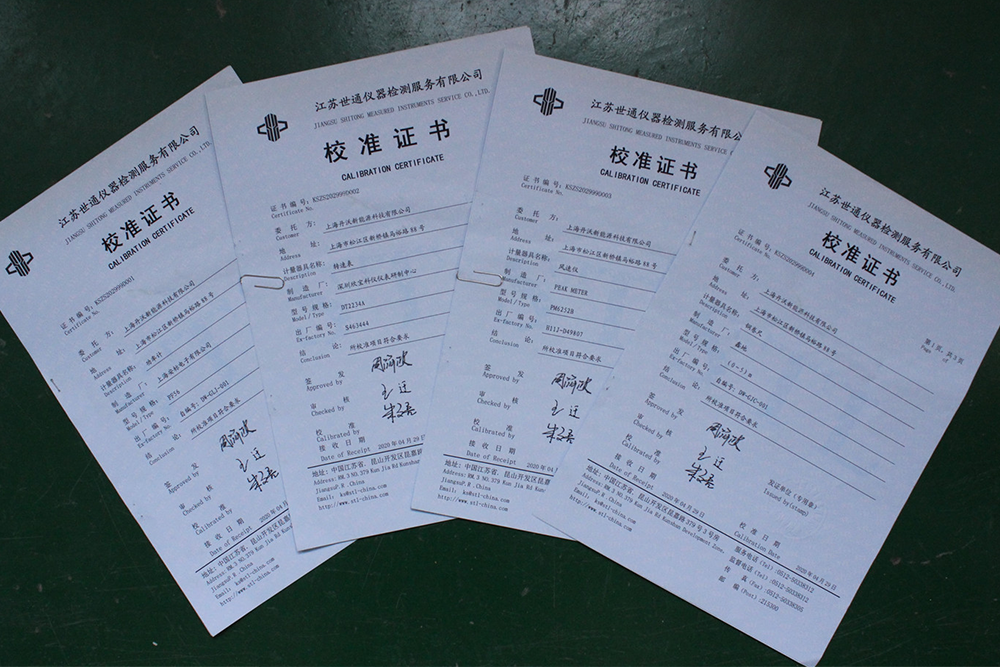 江苏世通仪器检测服务有限公司
JIANGSU SHITONG MEASURED INSTRUMENTS SERVICE CO.,LTD.
校准证书
CALIBRATION CERTIFICATE
证书编号: KSZS202099D0001
Certificate No.
委托方: 上海丹沃新能源科技有限公司
Customer
地址: 上海市松江区新桥镇马裕路88号
Address
计量器具名称: 功率计
Description
制造厂:
Manufacturer
型号规格:
Model/Type
出厂编号: 自编号: DW-GLJ-001
Ex-factory No.
结论: 所校准项目符合要求
Conclusion
签发
Approved by
审核
Checked by
校准
Calibrated by
接收日期
Date of Receipt 2020年04
地址: 中国江苏省, 昆山开发区昆嘉
Address: RM.3 NO.379 Kun Jia Rd Kuns
JiangsuP.R.China
Email: ks@stl-china.com
http://www.stl-china.com
江苏世通仪器检测服务有限公司
JIANGSU SHITONG MEASURED INSTRUMENTS SERVICE CO.,LTD.
校准证书
CALIBRATION CERTIFICATE
证书编号: KSZS202099D0002
Certificate No.
委托方: 上海丹沃新能源科技有限公司
Customer
地址: 上海市松江区新桥镇马裕路88号
Address
计量器具名称: 转速表
Description
制造厂: 深圳欣宝科仪仪表研制中心
Manufacturer
型号规格: DT2234A
Model/Type
出厂编号: S463444
Ex-factory No.
结论: 所校准项目符合要求
Conclusion
签发
Approved by
审核
Checked by
校准
Calibrated by
接收日期
Date of Receipt 2020年04月29日
地址: 中国江苏省, 昆山开发区昆嘉路
Address: RM.3 NO.379 Kun Jia Rd Kunshan
JiangsuP.R.China
Email: ks@stl-china.com
http://www.stl-china.com
江苏世通仪器检测服务有限公
JIANGSU SHITONG MEASURED INSTRUMENTS SERVICE
校准证书
CALIBRATION CERTIFICATE
证书编号: KSZS202099D0003
Certificate No.
委托方: 上海丹沃新能源科技有限公司
Customer
地址: 上海市松江区新桥镇马裕路88号
Address
计量器具名称: 风速仪
Description
制造厂: PEAK METER
Manufacturer
型号规格: PM6252B
Model/Type
出厂编号: H11J-D49807
Ex-factory No.
结论: 所校准项目符合要求
Conclusion
签发
Approved by
审核
Checked by
校准
Calibrated by
接收日期
Date of Receipt 2020年04
地址: 中国江苏省, 昆山开发区昆嘉
Address: RM.3 NO.379 Kun Jia Rd Kun
JiangsuP.R.China
Email: ks@stl-china.com
http://www.stl-china.com
江苏世通仪器检测服务有限公司
JIANGSU SHITONG MEASURED INSTRUMENTS SERVICE CO.,LTD.
校准证书
CALIBRATION CERTIFICATE
证书编号: KSZS202099D0004
Certificate No.
第1页, 共3页
Page of
委托方: 上海丹沃新能源科技有限公司
Customer
地址: 上海市松江区新桥镇马裕路88号
Address
计量器具名称: 钢卷尺
Description
制造厂:
Manufacturer
型号规格:
Model/Type
出厂编号: 自编号: DW-GJC-001
Ex-factory No.
结论: 所校准项目符合要求
Conclusion
签发
Approved by
审核
Checked by
校准
Calibrated by
发证单位(专用章)
Issued by(stamp)
接收日期 2020年04月29日
Date of Receipt
校准日期 2020年04月29日
Calibration Date
地址: 中国江苏省, 昆山开发区昆嘉路379号3号房
Address: RM.3 NO.379 Kun Jia Rd Kunshan Development Zone,
JiangsuP.R.China
Email: ks@stl-china.com
http://www.stl-china.com
服务电话(Tel):0512-50338312
监督电话(Tel):0512-50338312
传真(Fax):0512-50338305
邮编(Post):215300